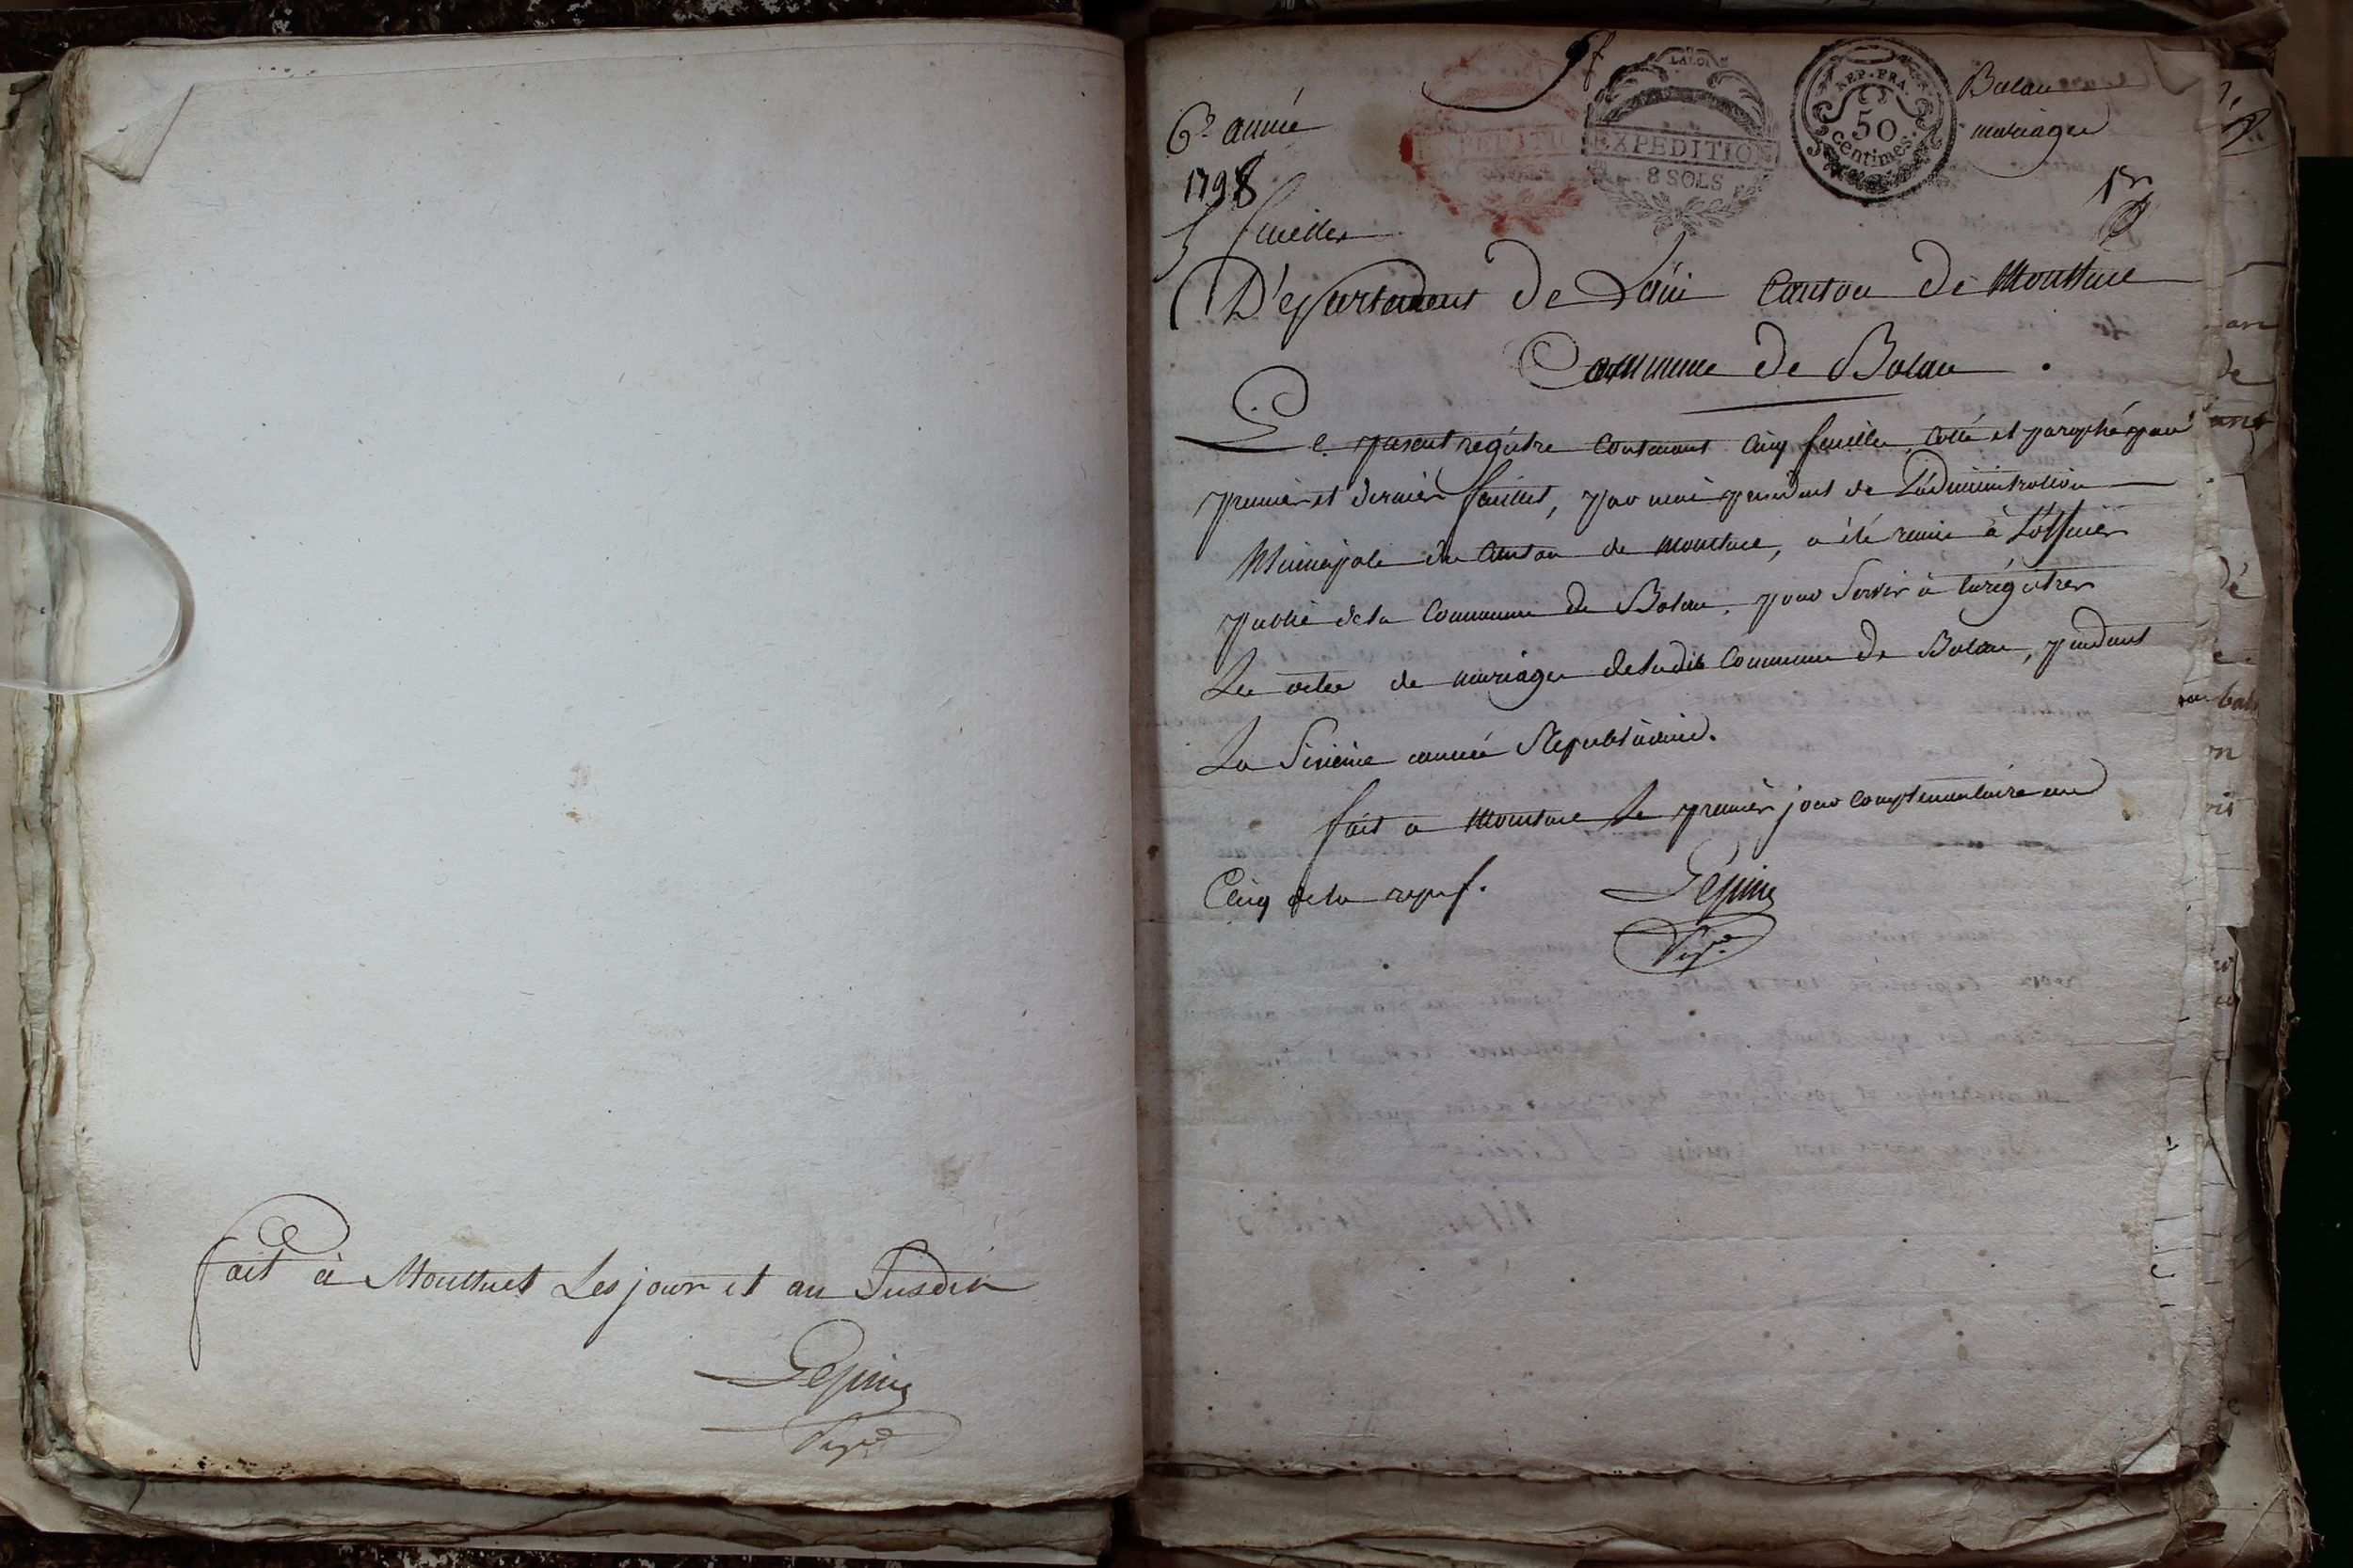 fait à Montluel Les jour et an Susdit
Lepine
6e année
1798
5 feuilles
9f
LA LOI
EXPEDITION
8 SOLS
REP. FRA.
50
Centimes.
Balan
mariages
1er
Département de L'ain Canton de Montluel
Commune de Balan.
Le present registre Contenant Cinq feuilles Cotté et paraphé par
premier et dernier feuillet, par moi president de L'administration
Municipale du Canton de Montluel, a été remis à L'officier
public de la Commune de Balan. pour Servir a Enrégistrer
Les actes de mariages de ladite Commune de Balan, pendant
La Sixième année Republicaine.
fait a Montluel Le premier jour complementaire an
Cinq de la repuf.
Lepine